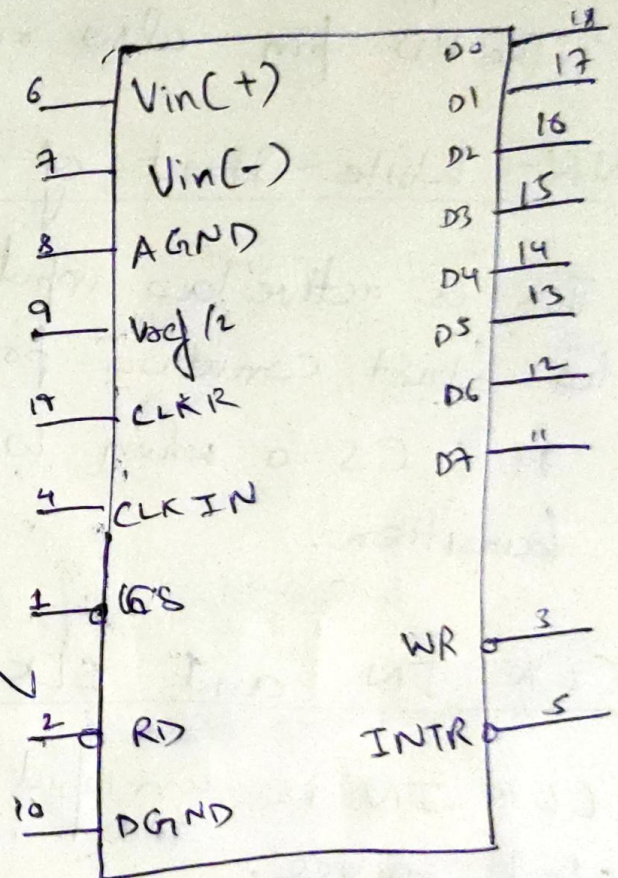 6 Vin(+)
7 Vin(-)
8 AGND
9 Vref/2
19 CLKR
4 CLKIN
1 CS
2 RD
10 DGND
D0 18
D1 17
D2 16
D3 15
D4 14
D5 13
D6 12
D7 11
WR 3
INTR 5